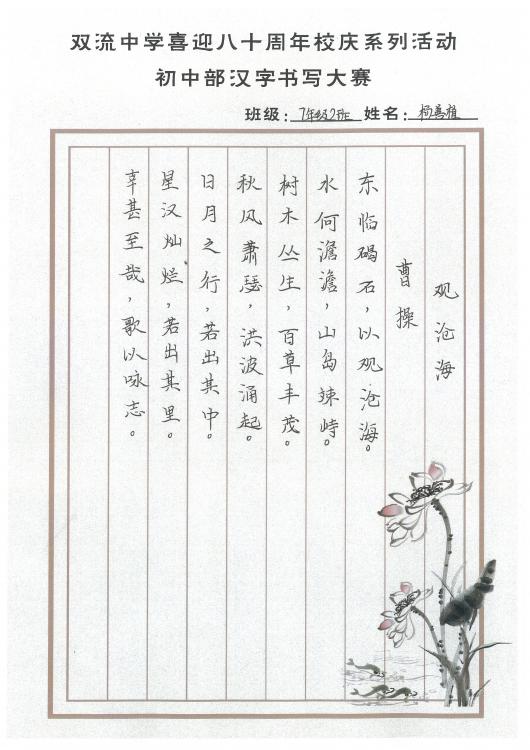 双流中学喜迎八十周年校庆系列活动
初中部汉字书写大赛
班级：7年级2班 姓名：杨善植
观沧海
曹操
东临碣石，以观沧海。
水何澹澹，山岛竦峙。
树木丛生，百草丰茂。
秋风萧瑟，洪波涌起。
日月之行，若出其中。
星汉灿烂，若出其里。
幸甚至哉，歌以咏志。